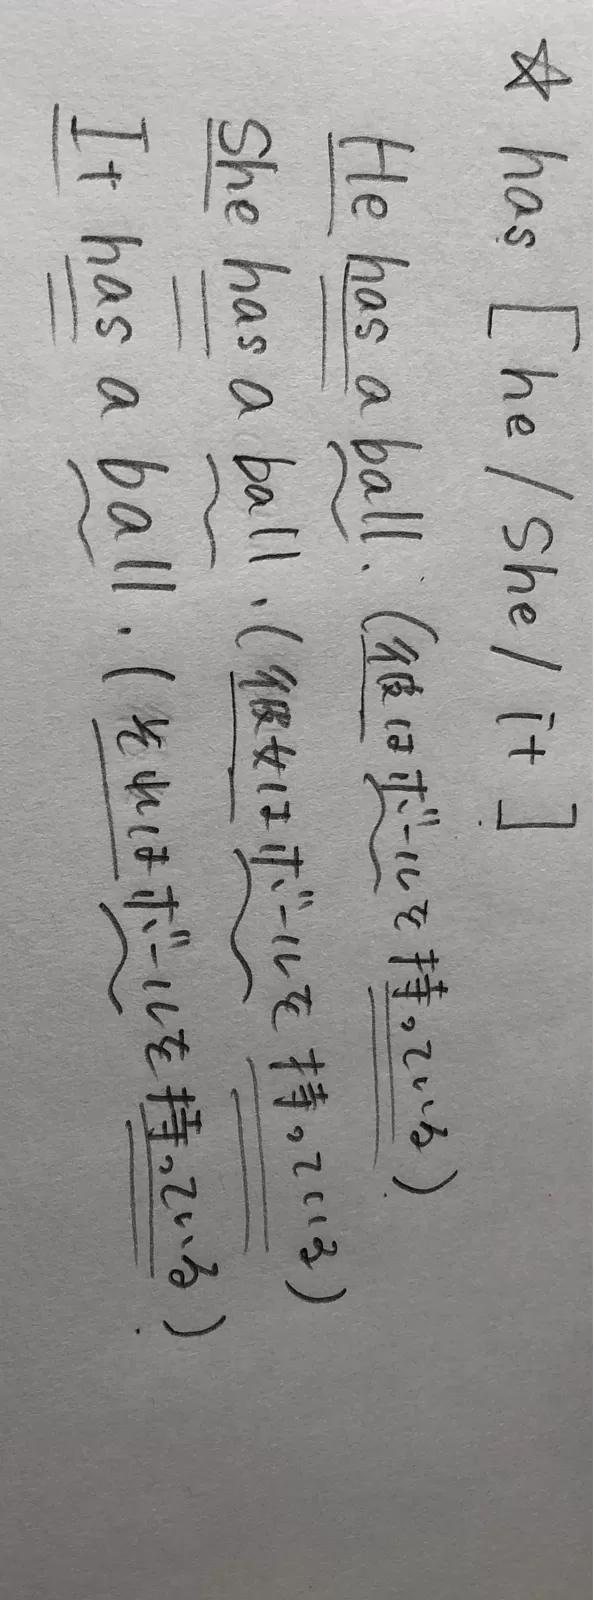 ☆ has [he/She/it]
He has a ball. (彼はボールを持っている)
She has a ball. (彼女はボールを持っている)
It has a ball. (それはボールを持っている)